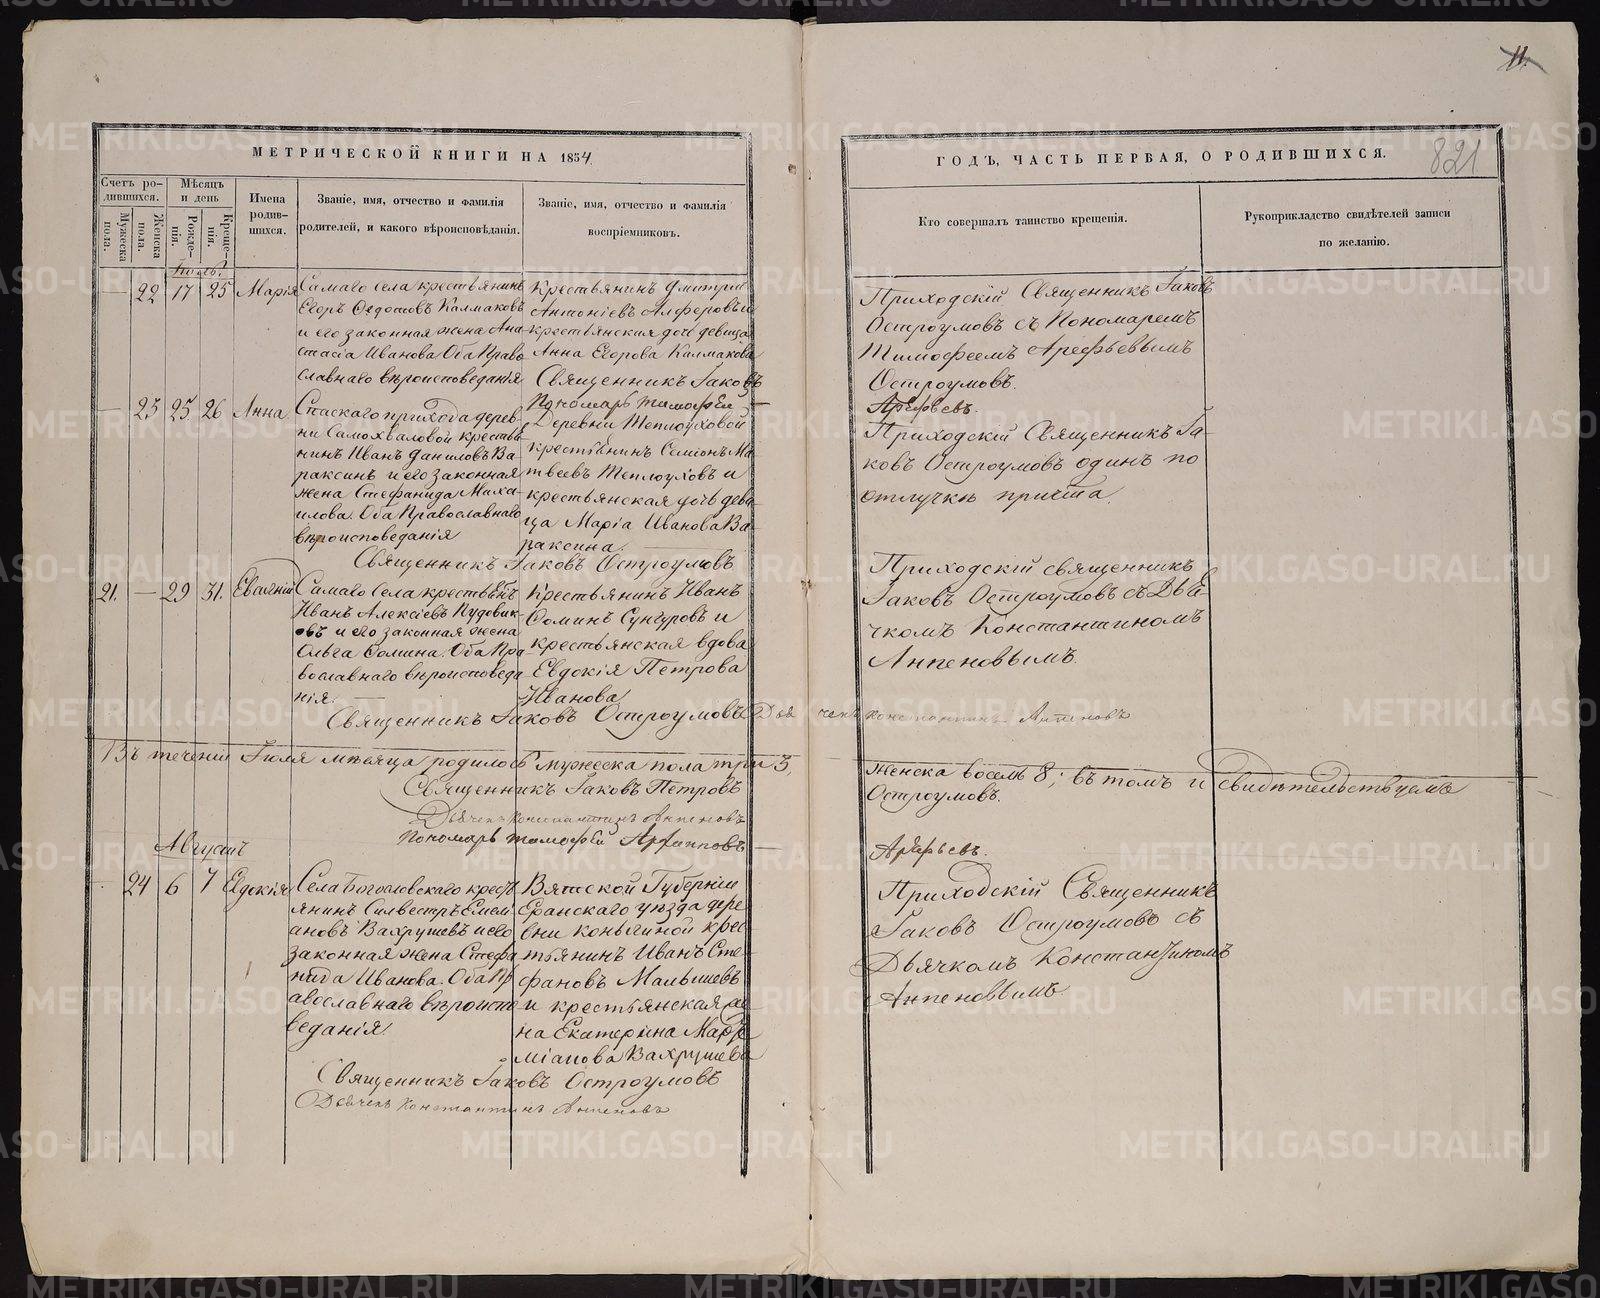 11.
821
МЕТРИЧЕСКОЙ КНИГИ НА 1854
ГОДЪ, ЧАСТЬ ПЕРВАЯ, О РОДИВШИХСЯ.
Счетъ ро-
дившихся.
Мужеска
пола.
Женска
пола.
Мѣсяцъ
и день
Рожде-
нія.
Креще-
нія.
Имена
родив-
шихся.
Званіе, имя, отчество и фамилія
родителей, и какого вѣроисповѣданія.
Званіе, имя, отчество и фамилія
воспріемниковъ.
Кто совершалъ таинство крещенія.
Рукоприкладство свидѣтелей записи
по желанію.
22 17 25 Марія
Самаго села крестьянинъ
Егоръ Ѳедотовъ Калмаковъ
и его законная жена Ана
стасіа Иванова Оба Право
славнаго вѣроисповеданія
Крестьянинъ Дмитрій
Антоніевъ Алферовъ и
крестьянская дочь девица
Анна Егорова Калмакова
Священникъ Іаковъ
Пономарь Тимофей
Приходскій Священникъ Іаковъ
Остроумовъ съ Пономаремъ
Тимофеемъ Арефьевымъ
Остроумовъ.
Арефьевъ.
23 25 26 Анна
Спаскаго прихода дерев
ни Самохваловой кресть
нинъ Иванъ Даниловъ Ва-
раксинъ и его законная
жена Стефанида Миха-
илова. Оба Православнаго
вѣроисповеданія
Деревни Теплоуховой
крестьянинъ Семіонъ Ма
твеевъ Теплоуховъ и
крестьянская дочь деви-
ца Маріа Иванова Ва-
раксина.
Священникъ Іаковъ Остроумовъ
Приходскій Священникъ Іа-
ковъ Остроумовъ одинъ по
отлучкѣ причта.
21. — 29 31.
Самаго Села крестьянинъ
Иванъ Алексіевъ Пудовик-
овъ и его законная жена
Ольга Фомина. Оба Пра
вославнаго вѣроисповеда
нія.
Крестьянинъ Иванъ
Фоминъ Сунгуровъ и
крестьянская вдова
Евдокія Петрова
Иванова
Священникъ Іаковъ Остроумовъ Дьячекъ Константинъ
Приходскій священникъ
Іаковъ Остроумовъ съ Дья-
чкомъ Константиномъ
Анпеновымъ.
Въ теченіи Іюля мѣсяца родилось мужеска пола три 3,
женска восемь 8; въ томъ и свидѣтельствуемъ
Священникъ Іаковъ Петровъ
Остроумовъ.
Дьячекъ Константинъ Анпеновъ
Пономарь Тимофей
Арефьевъ.
Августъ
24 6 7 Евдокія
Села Богословскаго крест
янинъ Силвестръ Емелі
ановъ Вахрушевъ и его
законная жена Стефа
нида Иванова. Оба Пр
авославнаго вѣроиспо
веданія.
Вятской Губерніи
Еранскаго уѣзда дере
вни Коньгиной крес
тьянинъ Иванъ Сте-
фановъ Малышевъ
и крестьянская же
на Екатерина
Вахрушева
Священникъ Іаковъ Остроумовъ
Дьячекъ Константинъ Анпеновъ
Приходскій Священникъ
Іаковъ Остроумовъ съ
Дьячкомъ Константиномъ
Анпеновымъ.
METRIKI.GASO-URAL.RU